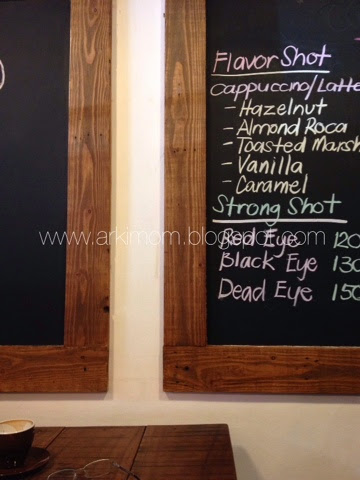 Flavor Shot
Cappuccino/Latte
- Hazelnut
- Almond Roca
- Toasted Marsh
- Vanilla
- Caramel
Strong Shot
www.arkimom.blogspot.com
Red Eye 120
Black Eye 130
Dead Eye 150